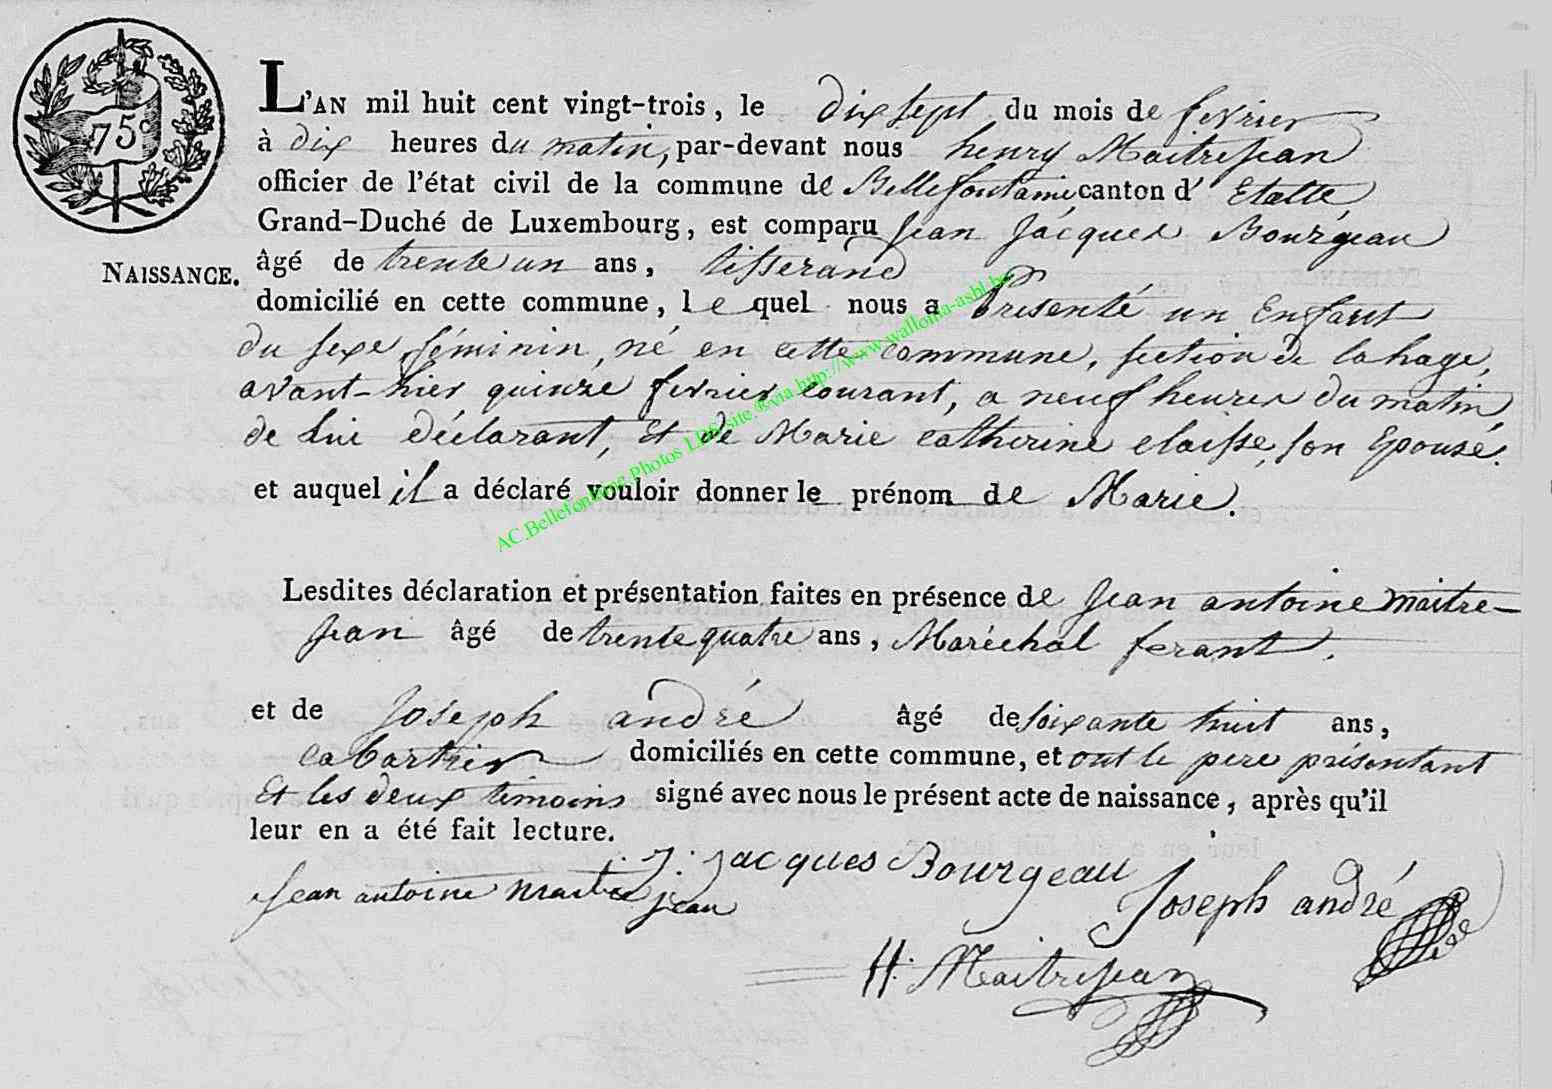 75c
L'AN mil huit cent vingt-trois, le dix sept du mois de fevrier
à dix heures du matin, par-devant nous henry Maitrejean
officier de l'état civil de la commune de Bellefontaine canton d'Etalle,
Grand-Duché de Luxembourg, est comparu Jean Jacques Bourgeau
NAISSANCE.
âgé de trente un ans, tisserand
domicilié en cette commune, lequel nous a Présenté un Enfant
du sexe féminin, né en cette commune, section de lahage,
avant-hier quinze fevrier courant, a neuf heures du matin
de Lui déclarant, et de Marie catherine claisse, son Epouse.
et auquel il a déclaré vouloir donner le prénom de Marie.
AC.Bellefontaine Photos LDS site &via http://www.wallonia-asbl.be
Lesdites déclaration et présentation faites en présence de Jean antoine maitre-
Jean âgé de trente quatre ans, Maréchal ferant,
et de Joseph andré âgé de soixante huit ans,
cabartier domiciliés en cette commune, et ont le pere présentant
Et les deux témoins signé avec nous le présent acte de naissance, après qu'il
leur en a été fait lecture.
J. jacques Bourgeau
Jean antoine maitre jean
Joseph andré
H. Maitrejean